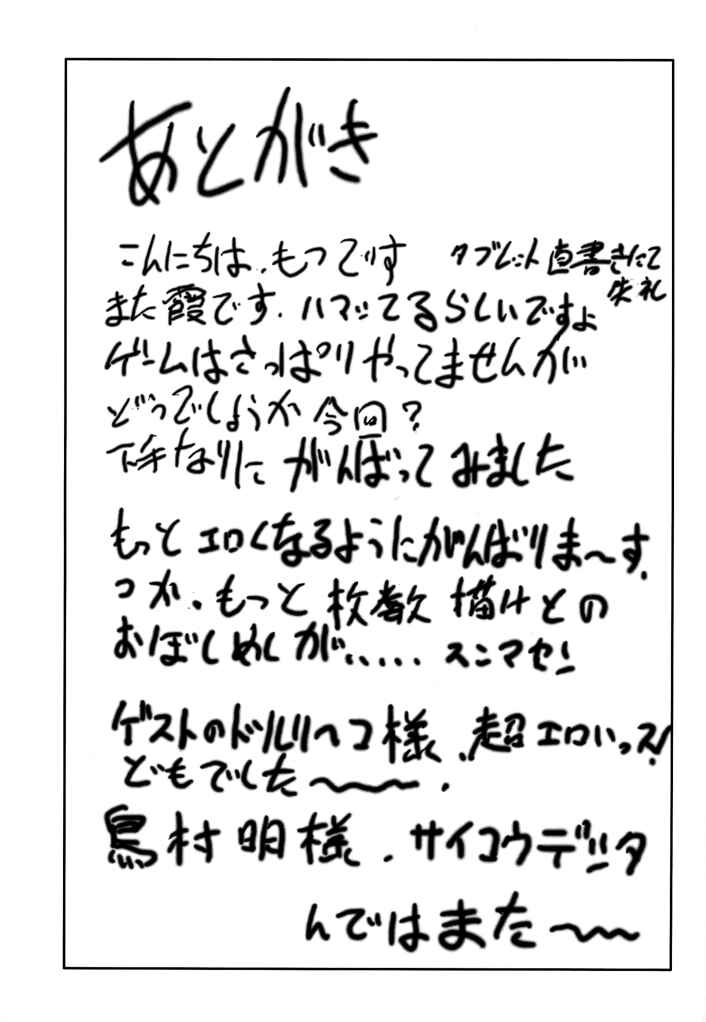 あとがき
こんにちは、もつです
タブレット直書きにて
失礼
また霞です、ハマッてるらしいですよ
ゲームはさっぱりやってませんが
どうでしょうか今回?
下手なりにがんばってみました
もっとエロくなるようにがんばりま〜す、
つか、もっと枚数描けとの
おぼしめしが、、、、、、スンマセン
ゲストのドルリヘコ様、超エロいっス!
どもでした〜〜、
鳥村明様、サイコウデシタ
んではまた〜〜